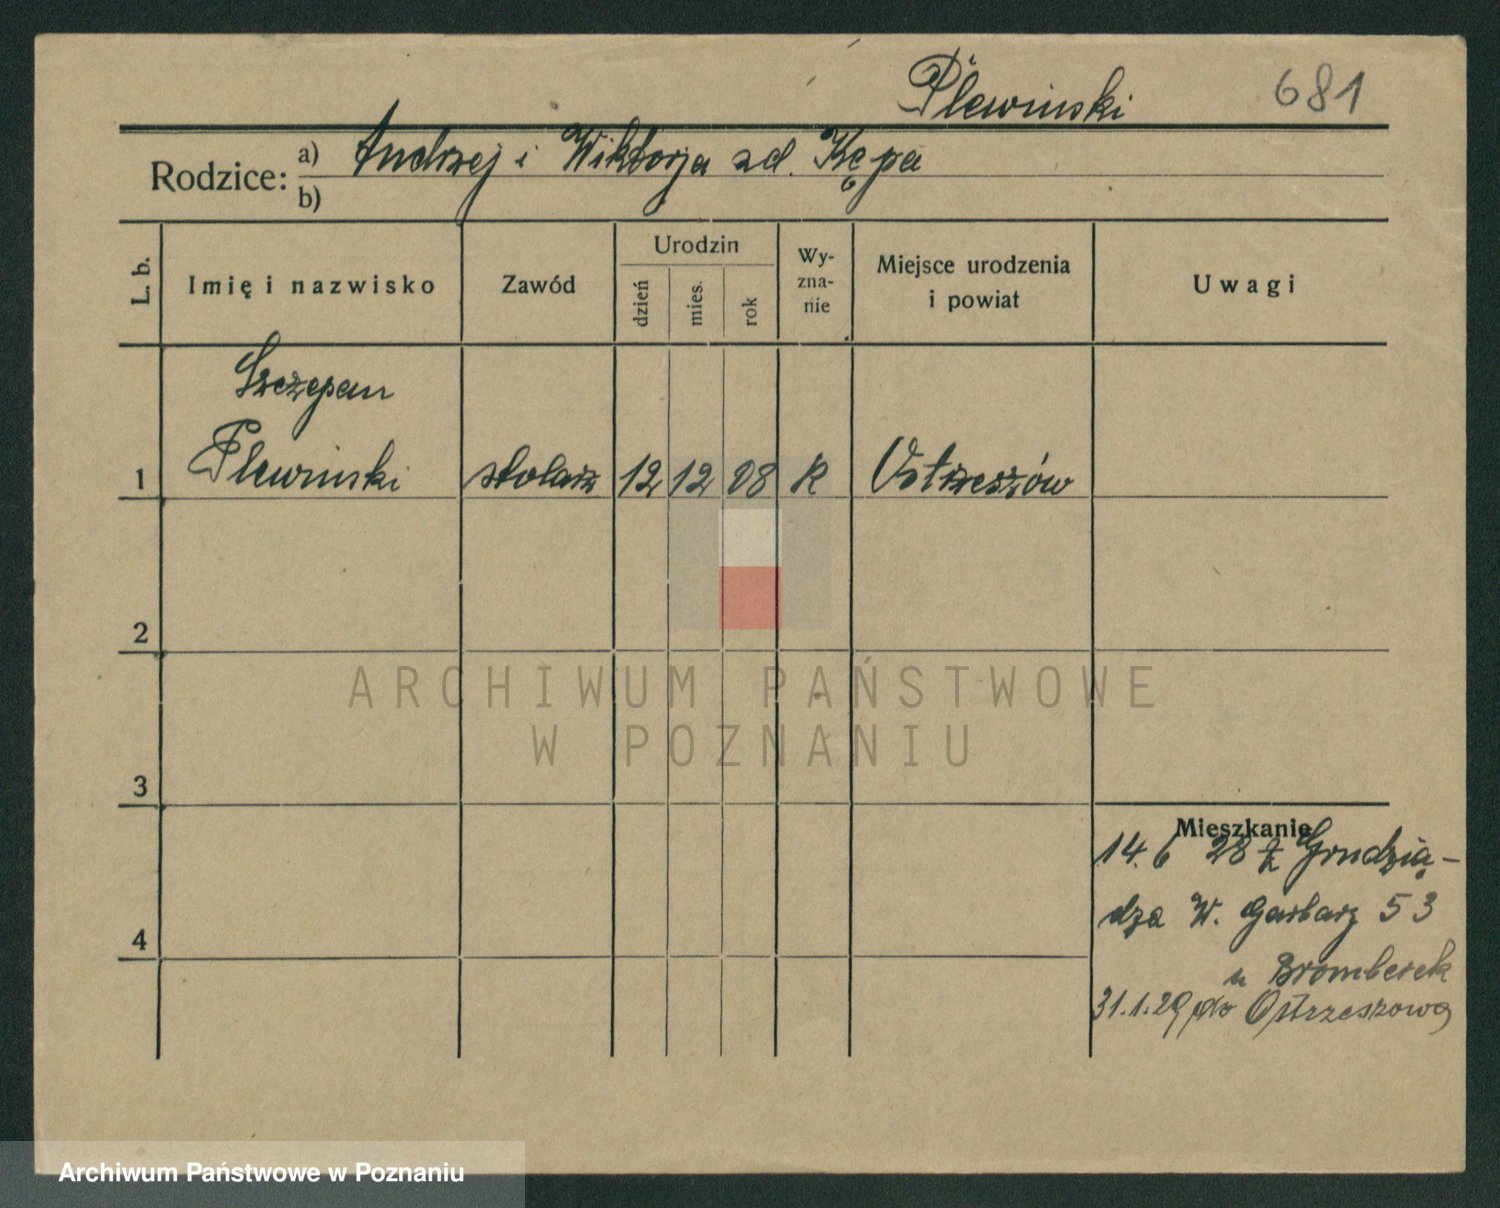 Plewiński 681
Rodzice: a) Andrzej i Wiktorja zd. Kępa
b)
L. b. Imię i nazwisko Zawód Urodzin dzień mies. rok Wyznanie Miejsce urodzenia i powiat Uwagi
Szczepan
1 Plewinski stolarz 12 12 08 R Ostrzeszów
2
ARCHIWUM PAŃSTWOWE
W POZNANIU
3
Mieszkanie
14.6 28 z Grudzią-
4 dza W. Garbarz 53
u Bromberek
31.1.29 do Ostrzeszowa
Archiwum Państwowe w Poznaniu